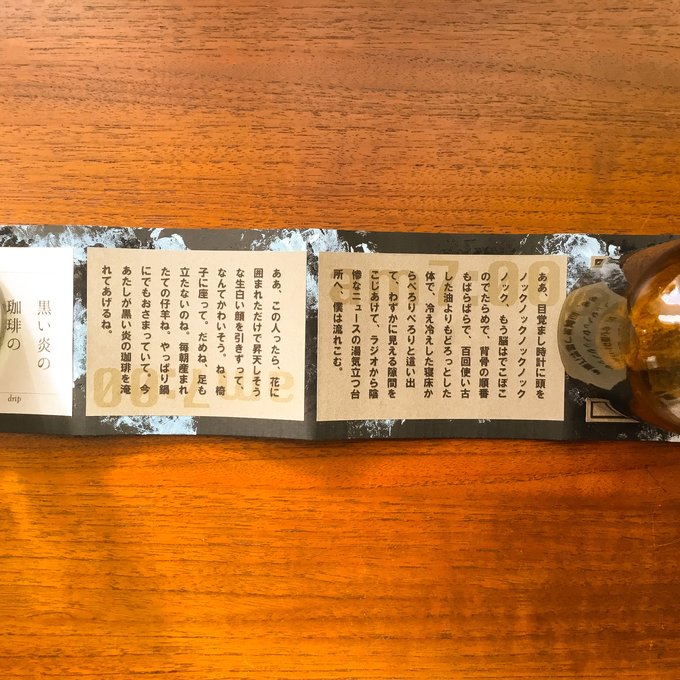 am7:00
ああ、目覚まし時計に頭を
ノックノックノックノック
ノック、もう脳はでこぼこ
のでたらめで、背骨の順番
もばらばらで、百回使い古
した油よりもどろっとした
体で、冷え冷えした寝床か
らぺろりぺろりと這い出
て、わずかに見える隙間を
こじあけて、ラジオから陰
惨なニュースの湯気立つ台
所へ、僕は流れこむ。
am7:00
ああ、この人ったら、花に
囲まれただけで昇天しそう
な生白い顔を引きずって、
なんてかわいそう。ね、椅
子に座って。だめね、足も
立たないのね。毎朝産まれ
たての仔羊ね。やっぱり鍋
にでもおさまっていて。今
あたしが黒い炎の珈琲を淹
れてあげるね。
黒い炎の
珈琲の
drip